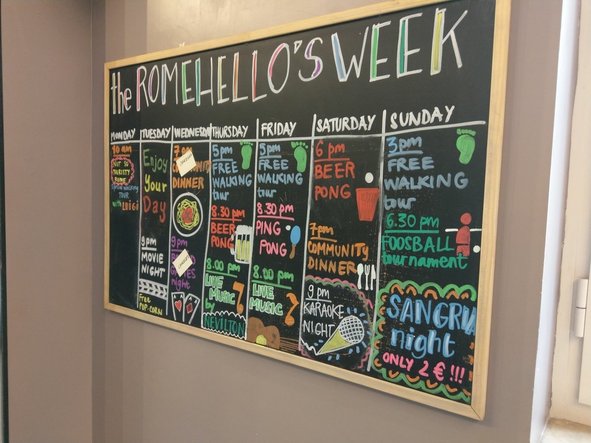 the ROMEHELLO'S WEEK
MONDAY
10 am
NOT SO
TOURISTY
ROME
Special walking
TOUR
with LUIGI
TUESDAY
Enjoy
Your
Day
9 pm
MOVIE
NIGHT
Free
POP-CORN
WEDNESDAY
7 pm
DINNER
9 pm
night
THURSDAY
5 pm
FREE
WALKING
tour
8.30 pm
BEER
PONG
8.00 pm
LIVE
MUSIC
by
NEVILTON
FRIDAY
5 pm
FREE
WALKING
tour
8.30 pm
PING
PONG
8.00 pm
LIVE
MUSIC
SATURDAY
6 pm
BEER
PONG
7pm
COMMUNITY
DINNER
9 pm
KARAOKE
NIGHT
SUNDAY
3pm
FREE
WALKING
tour
6.30 pm
FOOSBALL
tournament
SANGRIA
night
ONLY 2 € !!!